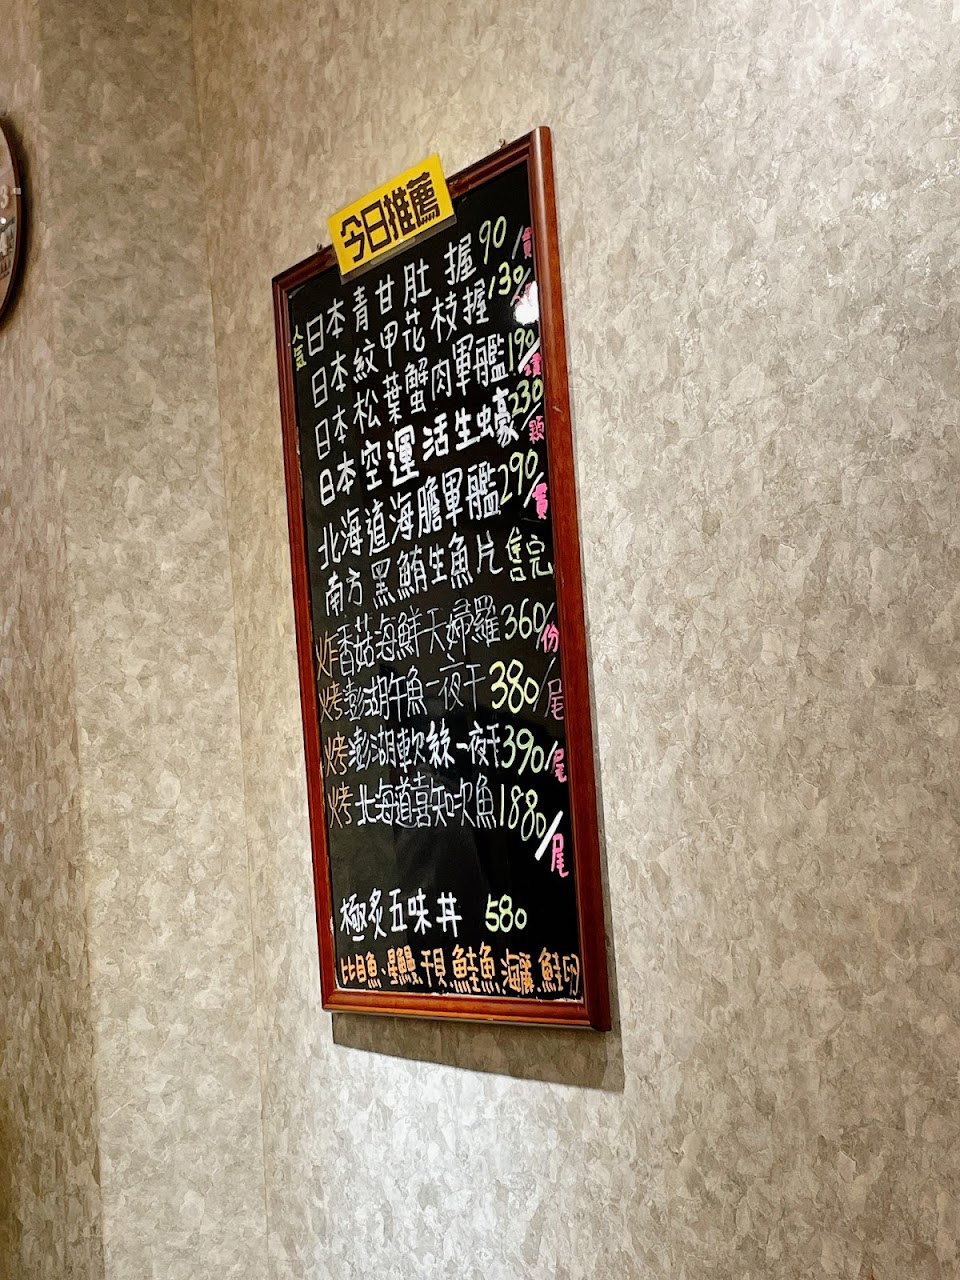 今日推薦
人氣
日本青甘肚 握 90/貫
日本紋甲花枝握 130/貫
日本松葉蟹肉軍艦 190/貫
日本空運活生蠔 230/顆
北海道海膽軍艦 290/貫
南方黑鮪生魚片 售完
炸香菇海鮮天婦羅 360/份
烤澎湖午魚一夜干 380/尾
烤澎湖軟絲一夜干 390/尾
烤北海道喜知次魚 1880/尾
極炙五味丼 580
比目魚、星鰻、干貝、鮭魚、海膽、鮭卵